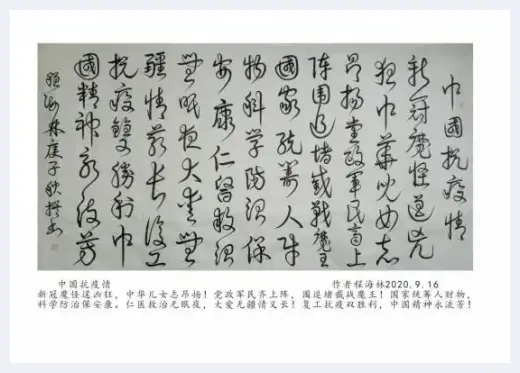 中國抗疫情
新冠魔怪逞凶
狂中華兒女志
昂扬党政军民齐上
阵围追堵截战魔王
國家统筹人财
物科学防治保
安康仁醫救治
無眠夜大愛無
疆情義长復工
抗疫雙勝利中
國精神永流芳
程海林庚子秋撰书
中国抗疫情 作者程海林2020.9.16
新冠魔怪逞凶狂，中华儿女志昂扬！党政军民齐上阵，围追堵截战魔王！国家统筹人财物，
科学防治保安康。仁医救治无眠夜，大爱无疆情又长！复工抗疫双胜利，中国精神永流芳！